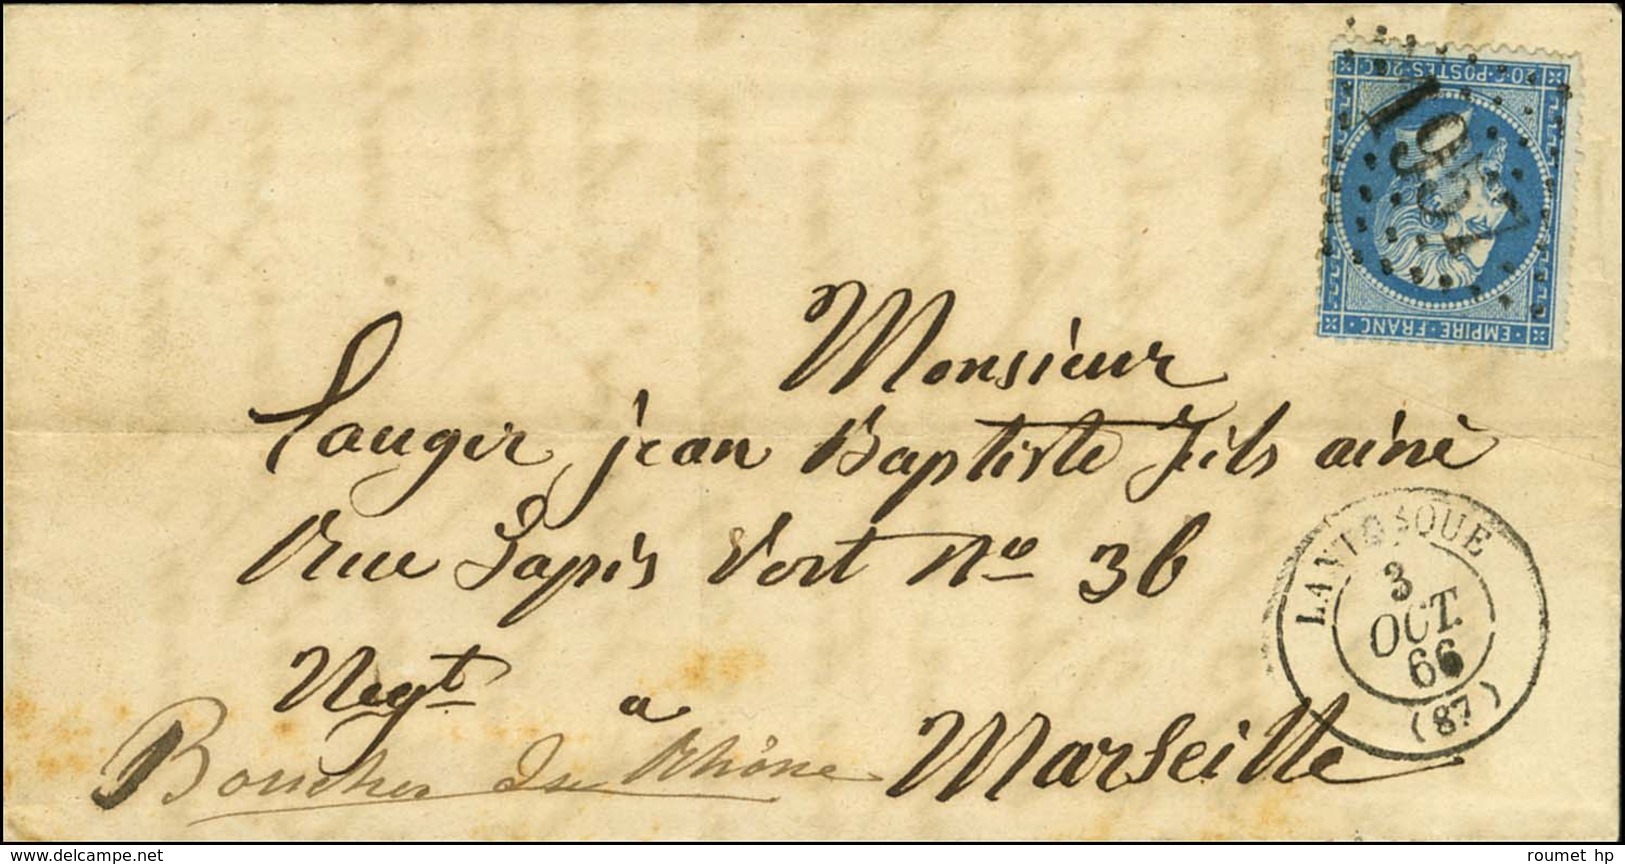 20 C POSTES 20 C
1957
EMPIRE · FRANC ·
Monsieur
Lauger jean Baptiste fils ainé
Rue Tapis Vert N° 36
Negt. a Marseille
Bouches du Rhône
LANTOSQUE
3
OCT.
66
(87)
delcampe.net
roumet hp